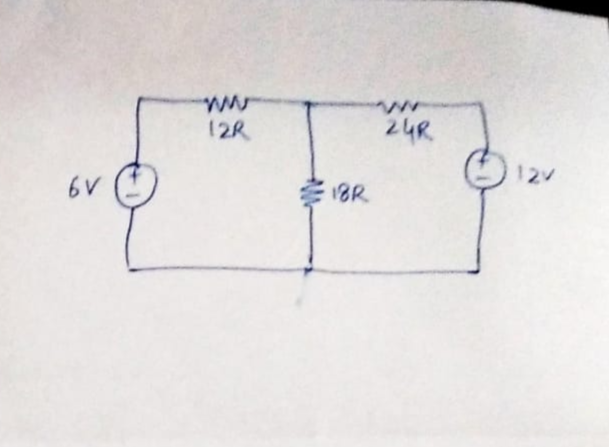 12R
24R
6V
+
-
18R
+
-
12V